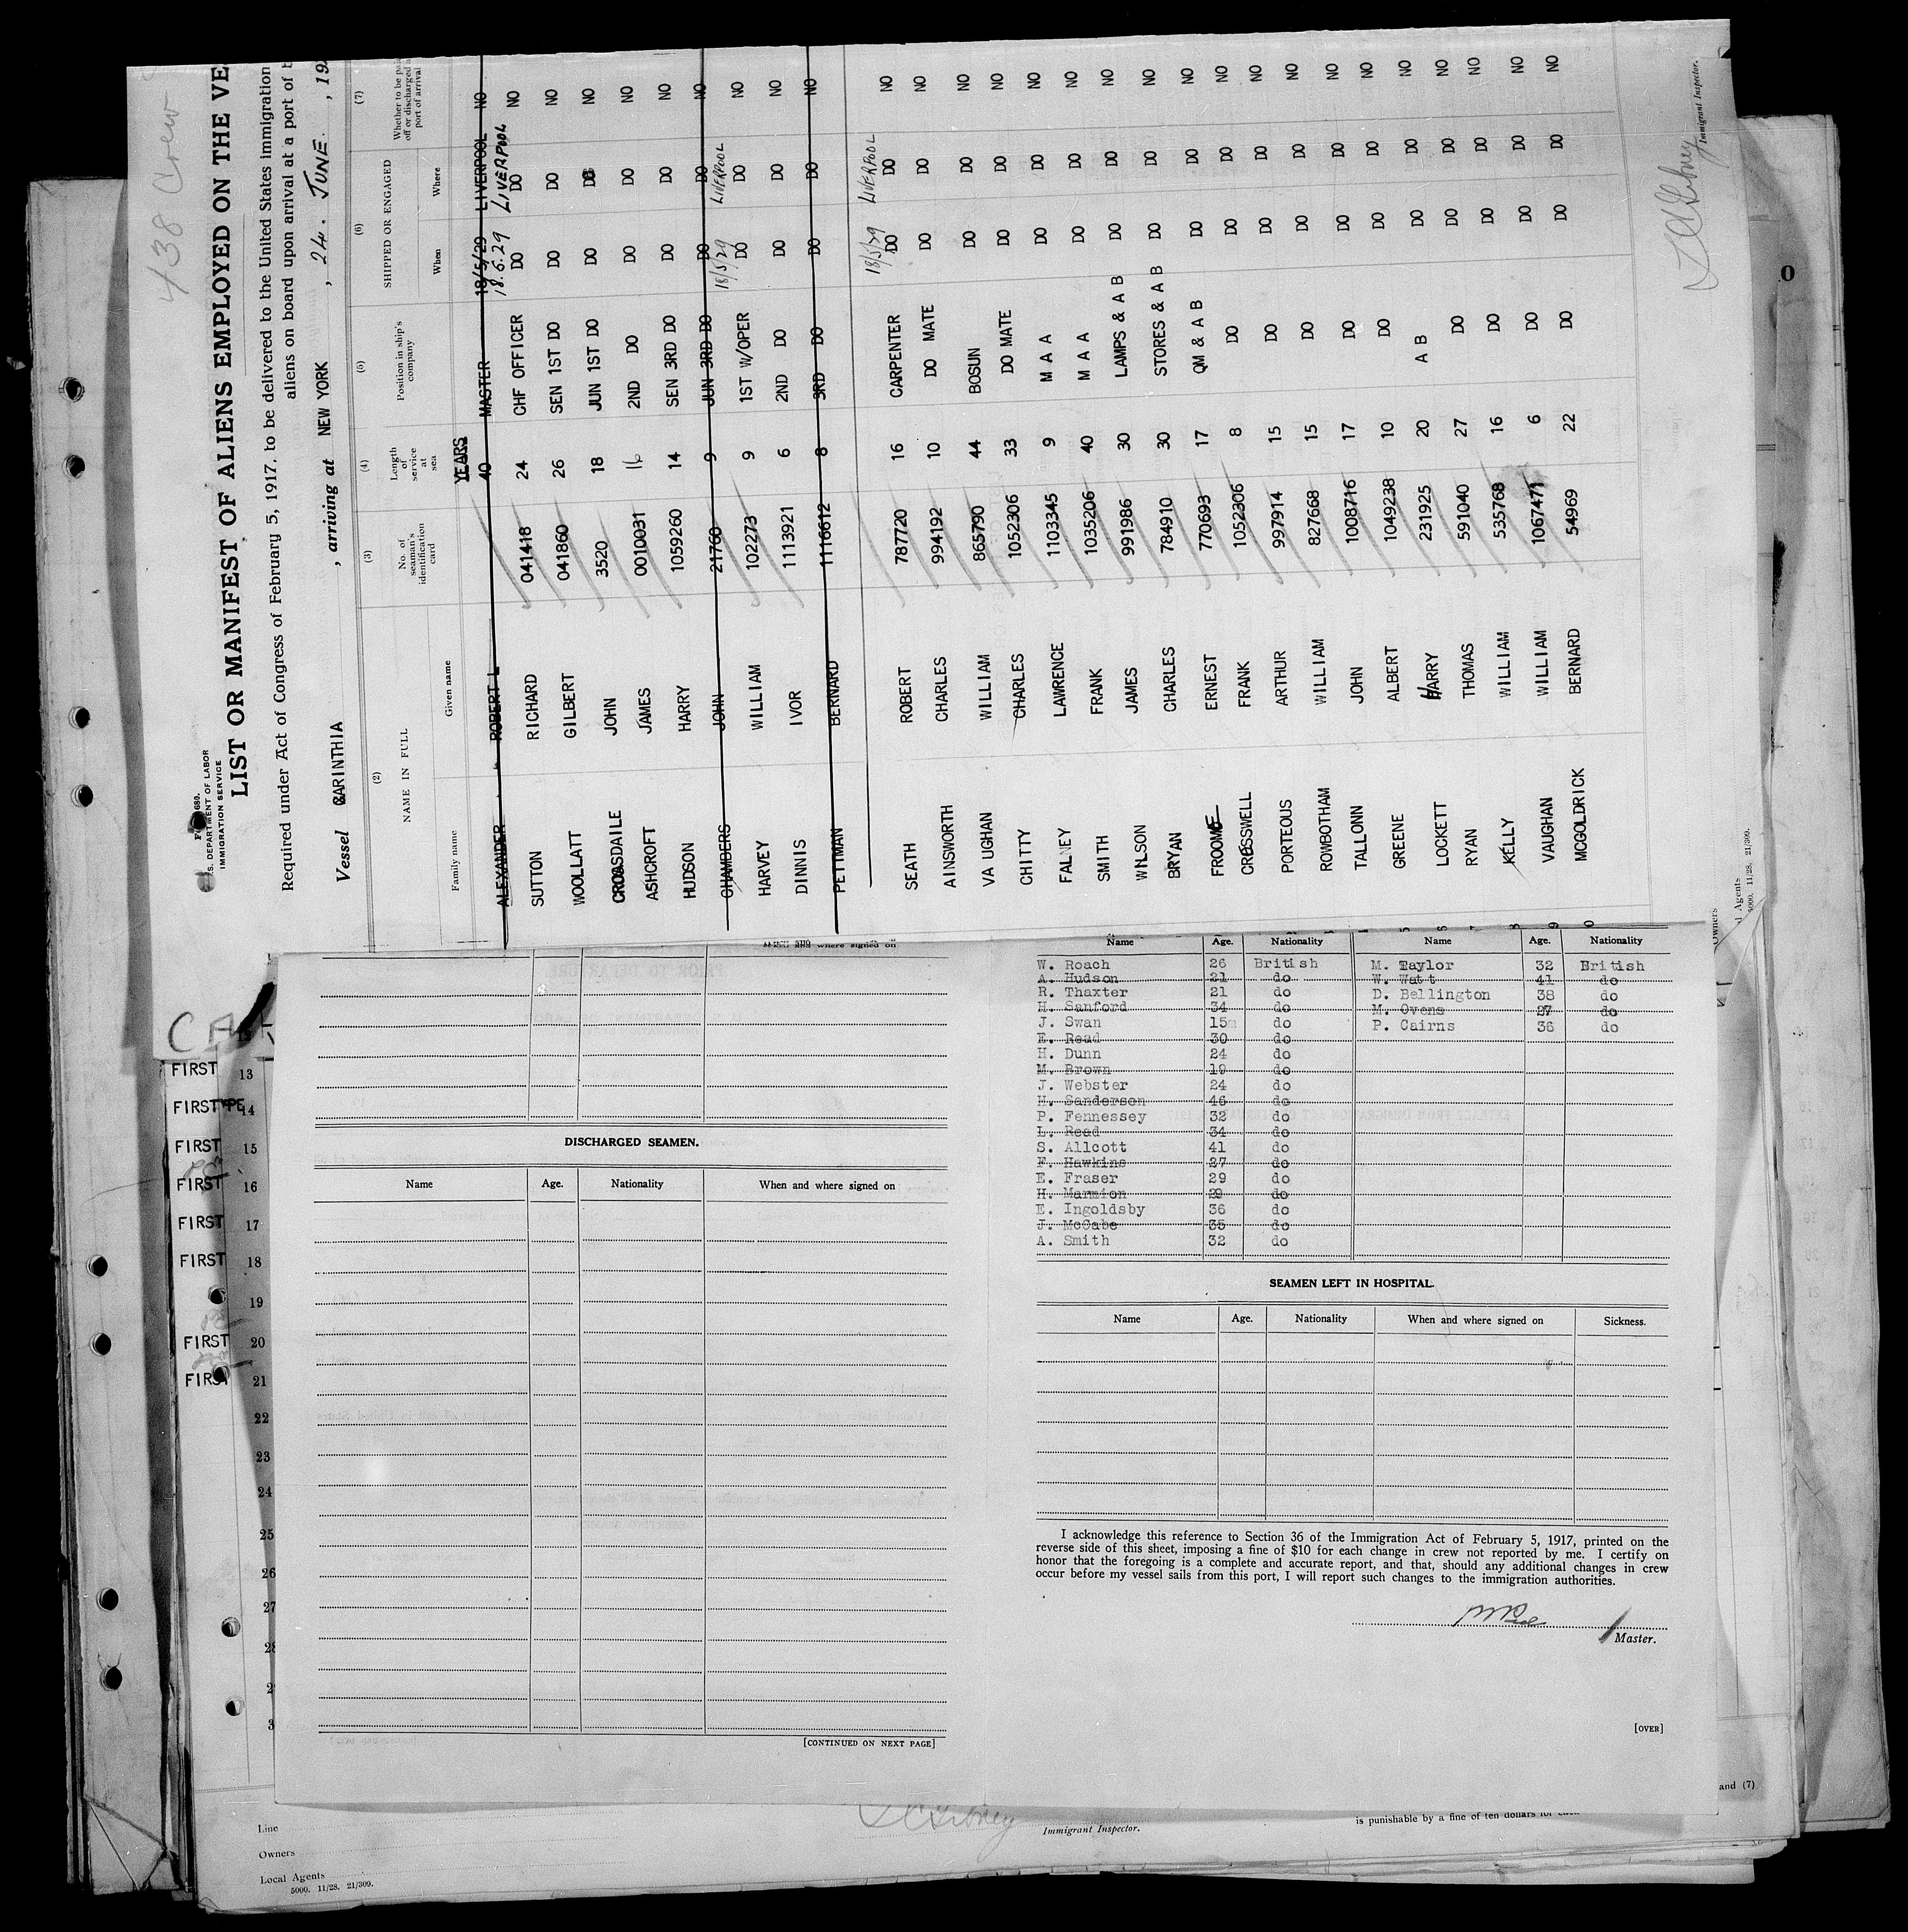 438 Crew
U. S. DEPARTMENT OF LABOR
IMMIGRATION SERVICE
LIST OR MANIFEST OF ALIENS EMPLOYED ON THE VE
Required under Act of Congress of February 5, 1917, to be delivered to the United States immigration
aliens on board upon arrival at a port of
Vessel CARINTHIA , arriving at NEW YORK , 24. JUNE. , 19
(2) (3) (4) (5) (6) (7)
NAME IN FULL No. of seaman's identification card Length of service at sea Position in ship's company SHIPPED OR ENGAGED Whether to be paid off or discharged at port of arrival
Family name Given name When Where
YEARS
ALEXANDER ROBERT L 40 MASTER 18/5/29 LIVERPOOL NO
18.6.29 LIVERPOOL
SUTTON RICHARD 041418 24 CHF OFFICER DO DO NO
WOOLLATT GILBERT 041860 26 SEN 1ST DO DO DO NO
CROASDAILE JOHN 3520 18 JUN 1ST DO DO DO NO
ASHCROFT JAMES 0010031 16 2ND DO DO DO NO
HUDSON HARRY 1059260 14 SEN 3RD DO DO DO NO
CHAMBERS JOHN 21760 9 JUN 3RD DO DO DO NO
18/5/29 LIVERPOOL
HARVEY WILLIAM 102273 9 1ST W/OPER DO DO NO
DINNIS IVOR 1113921 6 2ND DO DO DO NO
PETTMAN BERNARD 1116612 8 3RD DO DO DO NO
18/5/29 LIVERPOOL
SEATH ROBERT 787720 16 CARPENTER DO DO NO
AINSWORTH CHARLES 994192 10 DO MATE DO DO NO
VA UGHAN WILLIAM 865790 44 BOSUN DO DO NO
CHITTY CHARLES 1052306 33 DO MATE DO DO NO
FALNEY LAWRENCE 1103345 9 M A A DO DO NO
SMITH FRANK 1035206 40 M A A DO DO NO
WILSON JAMES 991986 30 LAMPS & A B DO DO NO
BRYAN CHARLES 784910 30 STORES & A B DO DO NO
FROOME ERNEST 770693 17 QM & A B DO DO NO
CRESSWELL FRANK 1052306 8 DO DO DO NO
PORTEOUS ARTHUR 997914 15 DO DO DO NO
ROWBOTHAM WILLIAM 827668 15 DO DO DO NO
TALLONN JOHN 1008716 17 DO DO DO NO
GREENE ALBERT 1049238 10 DO DO DO NO
LOCKETT HARRY 231925 20 A B DO DO NO
RYAN THOMAS 591040 27 DO DO DO NO
KELLY WILLIAM 535768 16 DO DO DO NO
VAUGHAN WILLIAM 1067471 6 DO DO DO NO
MCGOLDRICK BERNARD 54969 22 DO DO DO NO
Immigrant Inspector.
Owners
Agents
5000. 11/28. 21/309.
and where signed on
DISCHARGED SEAMEN.
Name Age. Nationality When and where signed on
[CONTINUED ON NEXT PAGE]
Name Age. Nationality Name Age. Nationality
W. Roach 26 British M. Taylor 32 British
A. Hudson 21 do W. Watt 41 do
R. Thaxter 21 do D. Bellington 38 do
H. Sanford 34 do M. Ovens 27 do
J. Swan 15 do P. Cairns 36 do
E. Read 30 do
H. Dunn 24 do
M. Brown 19 do
J. Webster 24 do
H. Sanderson 46 do
P. Fennessey 32 do
L. Read 34 do
S. Allcott 41 do
F. Hawkins 27 do
E. Fraser 29 do
H. Marmion 29 do
E. Ingoldsby 36 do
J. McCabe 35 do
A. Smith 32 do
SEAMEN LEFT IN HOSPITAL.
Name Age. Nationality When and where signed on Sickness.
I acknowledge this reference to Section 36 of the Immigration Act of February 5, 1917, printed on the
reverse side of this sheet, imposing a fine of $10 for each change in crew not reported by me. I certify on
honor that the foregoing is a complete and accurate report, and that, should any additional changes in crew
occur before my vessel sails from this port, I will report such changes to the immigration authorities.
Master.
[OVER]
FIRST 13
FIRST 14
FIRST 15
FIRST 16
FIRST 17
FIRST 18
19
FIRST 20
FIRST 21
22
23
24
25
26
27
28
and (7)
is punishable by a fine of ten dollars for each
Line
Immigrant Inspector.
Owners
Local Agents
5000. 11/28. 21/309.